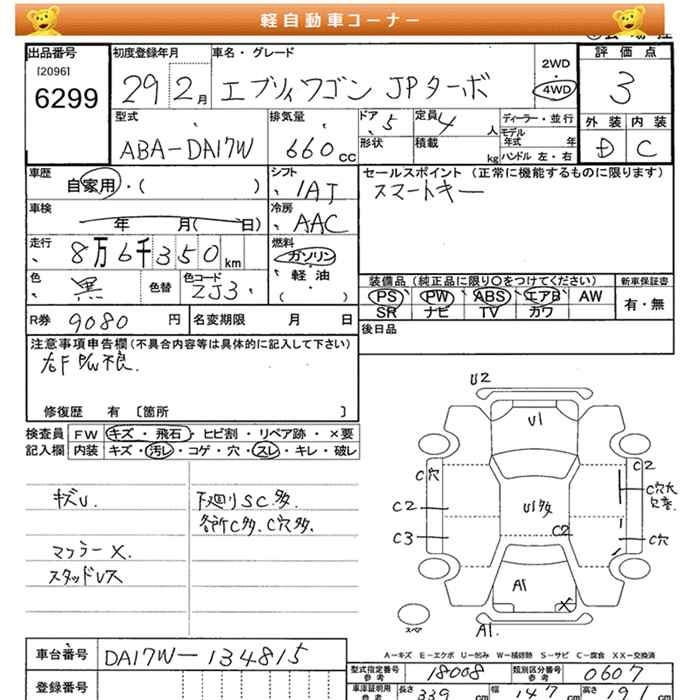 軽自動車コーナー
出品番号 初度登録年月 車名・グレード 2WD ・ 4WD 評価点
[2096] 6299 29 2月 エブリィワゴン JPターボ 3
型式 排気量 ドア 5 定員 4 人 ディーラー・並行 外装 内装
ABA-DA17W 660 CC 形状 積載 kg モデル年式 年 ハンドル 左・右 D C
車歴 自家用・( ) シフト IAT セールスポイント (正常に機能するものに限ります)
スマートキー
車検 年 月( 日) 冷房 AAC
走行 8万6千350km 燃料 ガソリン・軽油・( )
色 黒 色替 色コード ZJ3 装備品 (純正品に限り○をつけてください) 新車保証書
PS PW ABS エアB AW 有・無
SR ナビ TV カワ
R券 9080 円 名変期限 月 日 後日品
注意事項申告欄(不具合内容等は具体的に記入して下さい)
右F P/W不良.
修復歴 有 [箇所 ]
検査員 FW キズ・飛石・ヒビ割・リペア跡・×要
記入欄 内装 キズ・汚レ・コゲ・穴・スレ・キレ・破レ
キズU. 下廻りSC多.
各所C多.C穴多.
マフラーX.
スタッドレス
U2
U1
C穴 C2
C穴大
C2 U1多
C3 C2 C穴
A1 X
スペア A1.
A-キズ E-エクボ U-凹み W-補修跡 S-サビ C-腐食 XX-交換済
車台番号 DA17W-134815 型式指定番号 参考 18008 類別区分番号 参考 0607
登録番号 車庫証明用 参考 長さ 339 cm 幅 147 cm 高さ 191 cm